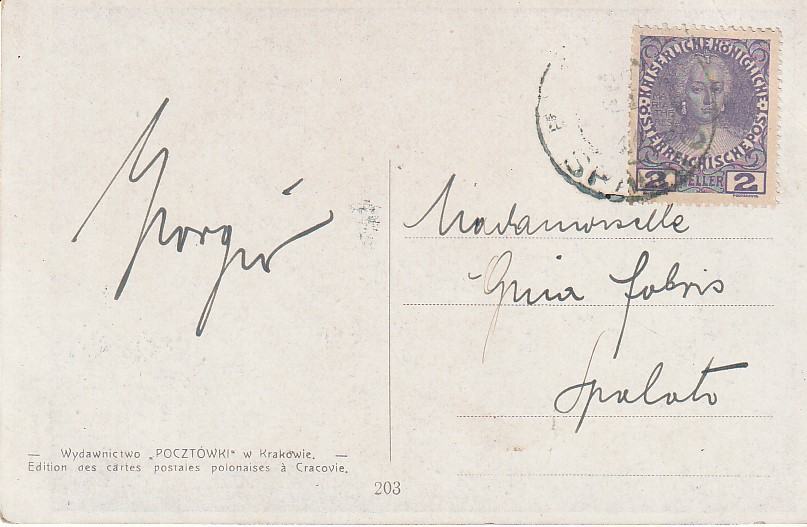 KAISERLICHE KÖNIGLICHE
ÖSTERREICHISCHE POST
2 HELLER 2
SPA
Giorgio
Madamoiselle
Gina Fabris
Spalato
— Wydawnictwo „POCZTÓWKI" w Krakowie. —
Edition des cartes postales polonaises à Cracovie.
203